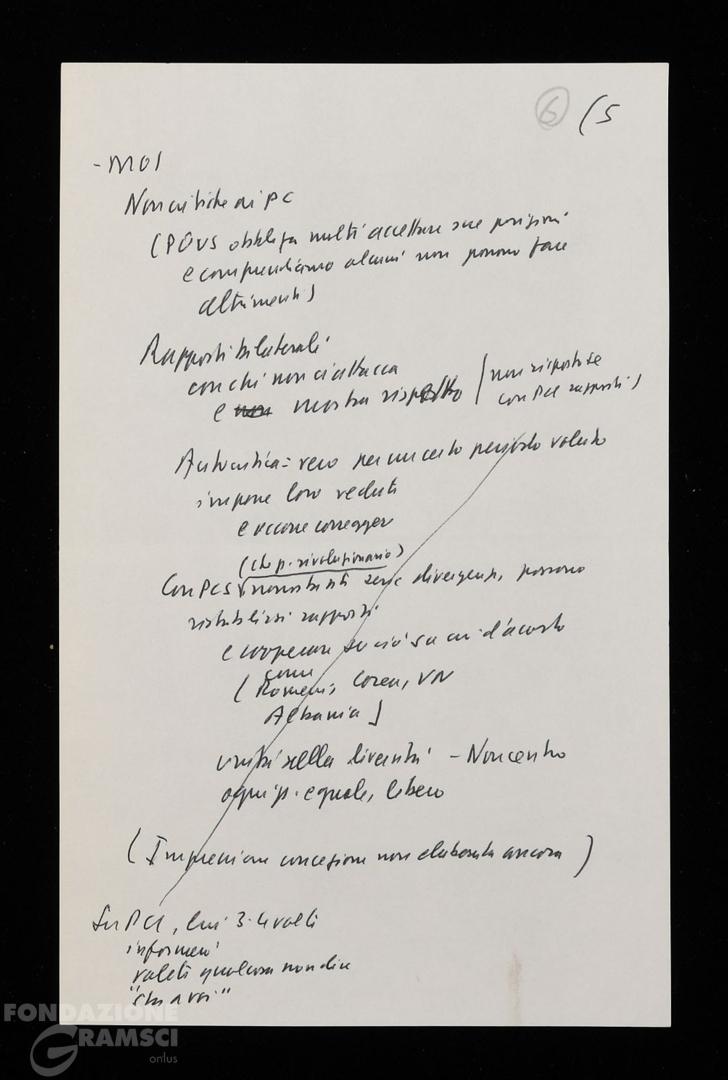 6 (5
- MOI
Non critiche ai PC
(PCUS obbliga molti accettare sue posizioni
e comprendiamo alcuni non possono fare
altrimenti)
Rapporti bilaterali
con chi non ci attacca
e non mostra rispetto / non risposto se
con PCI rapporti)
Autocritica = vero per un certo periodo voluto
imporre loro vedute
e occorre correggere
(che p. rivoluzionario)
Con PCS nonostanti serie divergenze, possono
ristabilirsi rapporti
e cooperare su ciò su cui d'accordo
come
(Romeni, Corea, VN
Albania)
unità nella diversità - Non centro
ogni p. eguale, libero
(Impressione concezione non elaborata ancora)
Su PCI, lui 3-4 volte
informerò
volete qualcosa non dire
"sta a voi"
FONDAZIONE
GRAMSCI
onlus